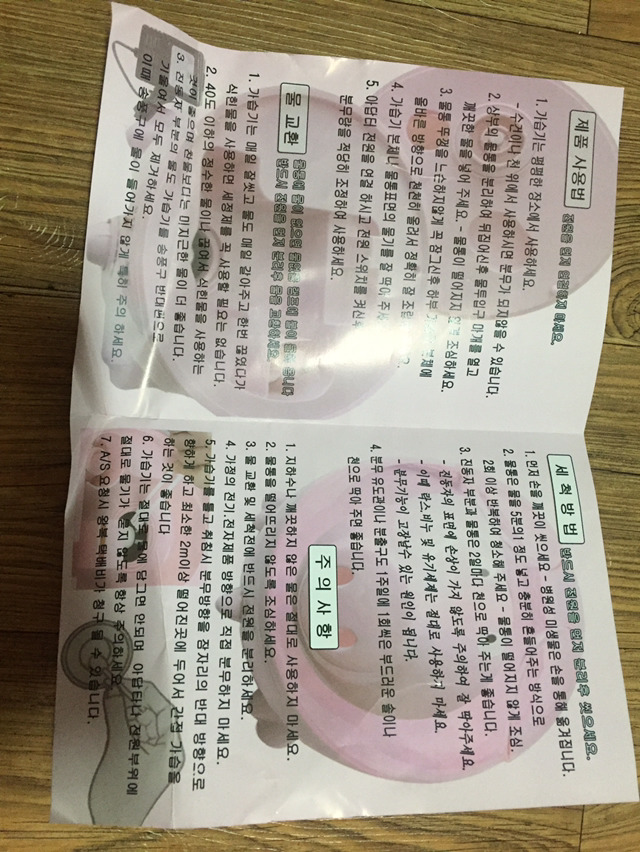 제품 사용법 전원을 먼저 연결하지 마세요.
1. 가습기는 평평한 장소에서 사용하세요.
- 수건이나 천 위에서 사용하시면 분무가 되지않을 수 있습니다.
2. 상부의 물통을 분리하여 뒤집어신후 물투입구 마개를 열고
깨끗한 물을 넣어 주세요. - 물통이 떨어지지 않게 조심하세요.
3. 물통 뚜껑을 느슨하지않게 꼭 잠그신후 하부
올바른 방향으로 천천히 올려서 정확히 잘 조립
4. 가습기 본체나 물통표면의 물기를 잘 딱아
5. 아답터 전원을 연결 하시고 전원 스위치를 켜신후
분무량을 적당히 조정하여 사용하세요.
물 교환 물통에 물이 없으면
반드시 전원을 먼저 분리후 물을 교환하세요.
1. 가습기는 매일 잘씻고 물도 매일 갈아주고 한번 끓였다가
식힌물을 사용하면 세정제를 꼭 사용할 필요는 없습니다.
2. 40도 이하의 정수한 물이나 끓여서 식힌물을 사용하는
것이 좋으며 찬물보다는 미지근한 물이 더 좋습니다.
3. 진동자 부분의 물도 가습기를 송풍구 반대편으로
기울여서 모두 제거하세요.
이때 송풍구에 물이 들어가지 않게 특히 주의 하세요.
세척방법 반드시 전원을 먼저 분리후 씻으세요.
1. 먼저 손을 깨끗이 씻으세요 - 병원성 미생물은 손을 통해 옮겨집니다.
2. 물통은 물을 5분의 1정도 넣고 충분히 흔들어주는 방식으로
2회 이상 반복하여 청소해 주세요 - 물통이 떨어지지 않게 조심.
3. 진동자 부분과 물통은 2일마다 천으로 딱아 주는게 좋습니다.
- 진동자의 표면에 손상이 가지 않도록 주의하여 잘 딱아주세요.
- 이때 락스,비누 및 유기세제는 절대로 사용하지 마세요.
- 분무기능이 고장날수 있는 원인이 됩니다.
4. 분무 유도관이나 분출구도 1주일에 1회씩은 부드러운 솔이나
천으로 딱아 주면 좋습니다.
주의사항
1. 지하수나 깨끗하지 않은 물은 절대로 사용하지 마세요.
2. 물통을 떨어뜨리지 않도록 조심하세요.
3. 물 교환 및 세척전에 반드시 전원을 분리하세요.
4. 가정의 전기,전자제품 방향으로 직접 분무하지 마세요.
5. 가습기를 틀고 취침시 분무방향을 잠자리의 반대 방향으로
향하게 하고 최소한 2m이상 떨어진곳에 두어서 간접 가습을
하는 것이 좋습니다
6. 가습기는 절대로 물에 담그면 안되며 아답터나 전원부위에
절대로 물기가 묻지 않도록 항상 주의하세요.
7. A/S 요청시 왕복 택배비가 청구될 수 있습니다.